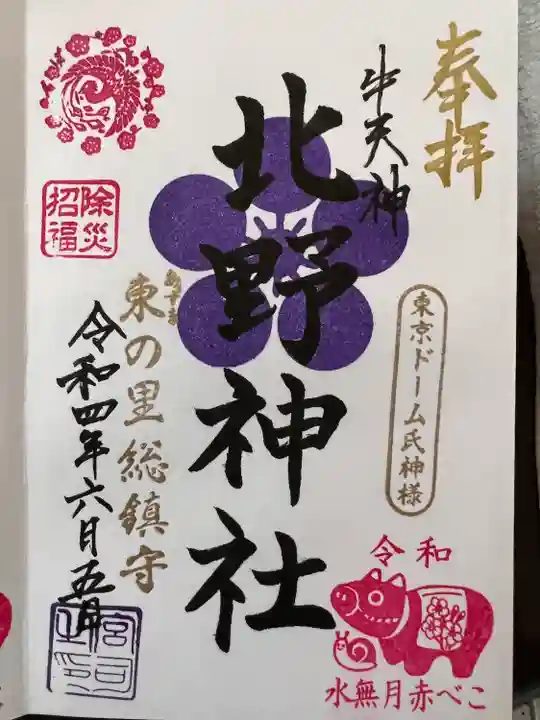 奉拝
牛天神
東京ドーム氏神様
北野神社
東の里総鎮守
令和四年六月五日
除災
招福
令和
水無月赤べこ
宮司
之印